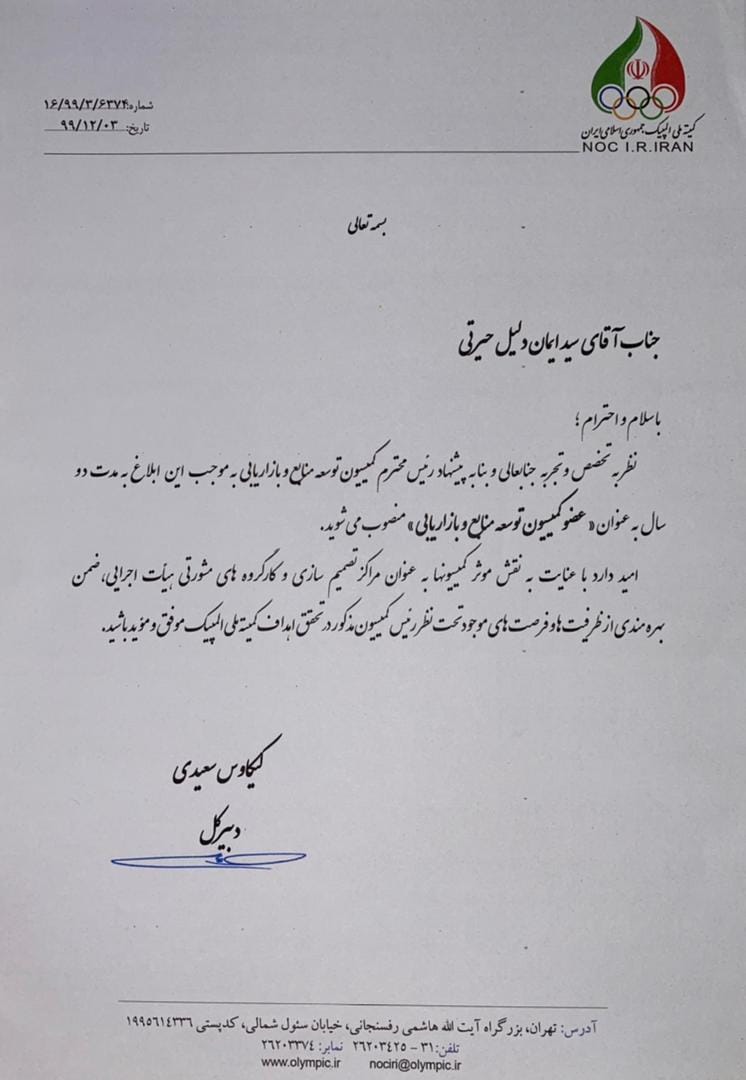 کمیته ملی المپیک جمهوری اسلامی ایران
NOC I.R.IRAN
شماره: ۱۶/۹۹/۳/۶۳۷۴
تاریخ: ۹۹/۱۲/۰۳
بسمه تعالی
جناب آقای سید ایمان دلیل حیرتی
با سلام و احترام؛
نظر به تخصص و تجربه جنابعالی و بنا به پیشنهاد رئیس محترم کمیسیون توسعه منابع و بازاریابی به موجب این ابلاغ به مدت دو
سال به عنوان «عضو کمیسیون توسعه منابع و بازاریابی» منصوب می شوید.
امید دارد با عنایت به نقش موثر کمیسیونها به عنوان مراکز تصمیم سازی و کارگروه های مشورتی هیأت اجرایی، ضمن
بهره مندی از ظرفیت ها و فرصت های موجود تحت نظر رئیس کمیسیون مذکور در تحقق اهداف کمیته ملی المپیک موفق و مؤید باشید.
کیکاوس سعیدی
دبیرکل
آدرس: تهران، بزرگراه آیت الله هاشمی رفسنجانی، خیابان سئول شمالی، کدپستی ۱۹۹۵۶۱۴۳۳۶
تلفن: ۳۱ - ۲۶۲۰۳۴۲۵ نمابر: ۲۶۲۰۳۳۷۴
www.olympic.ir nociri@olympic.ir